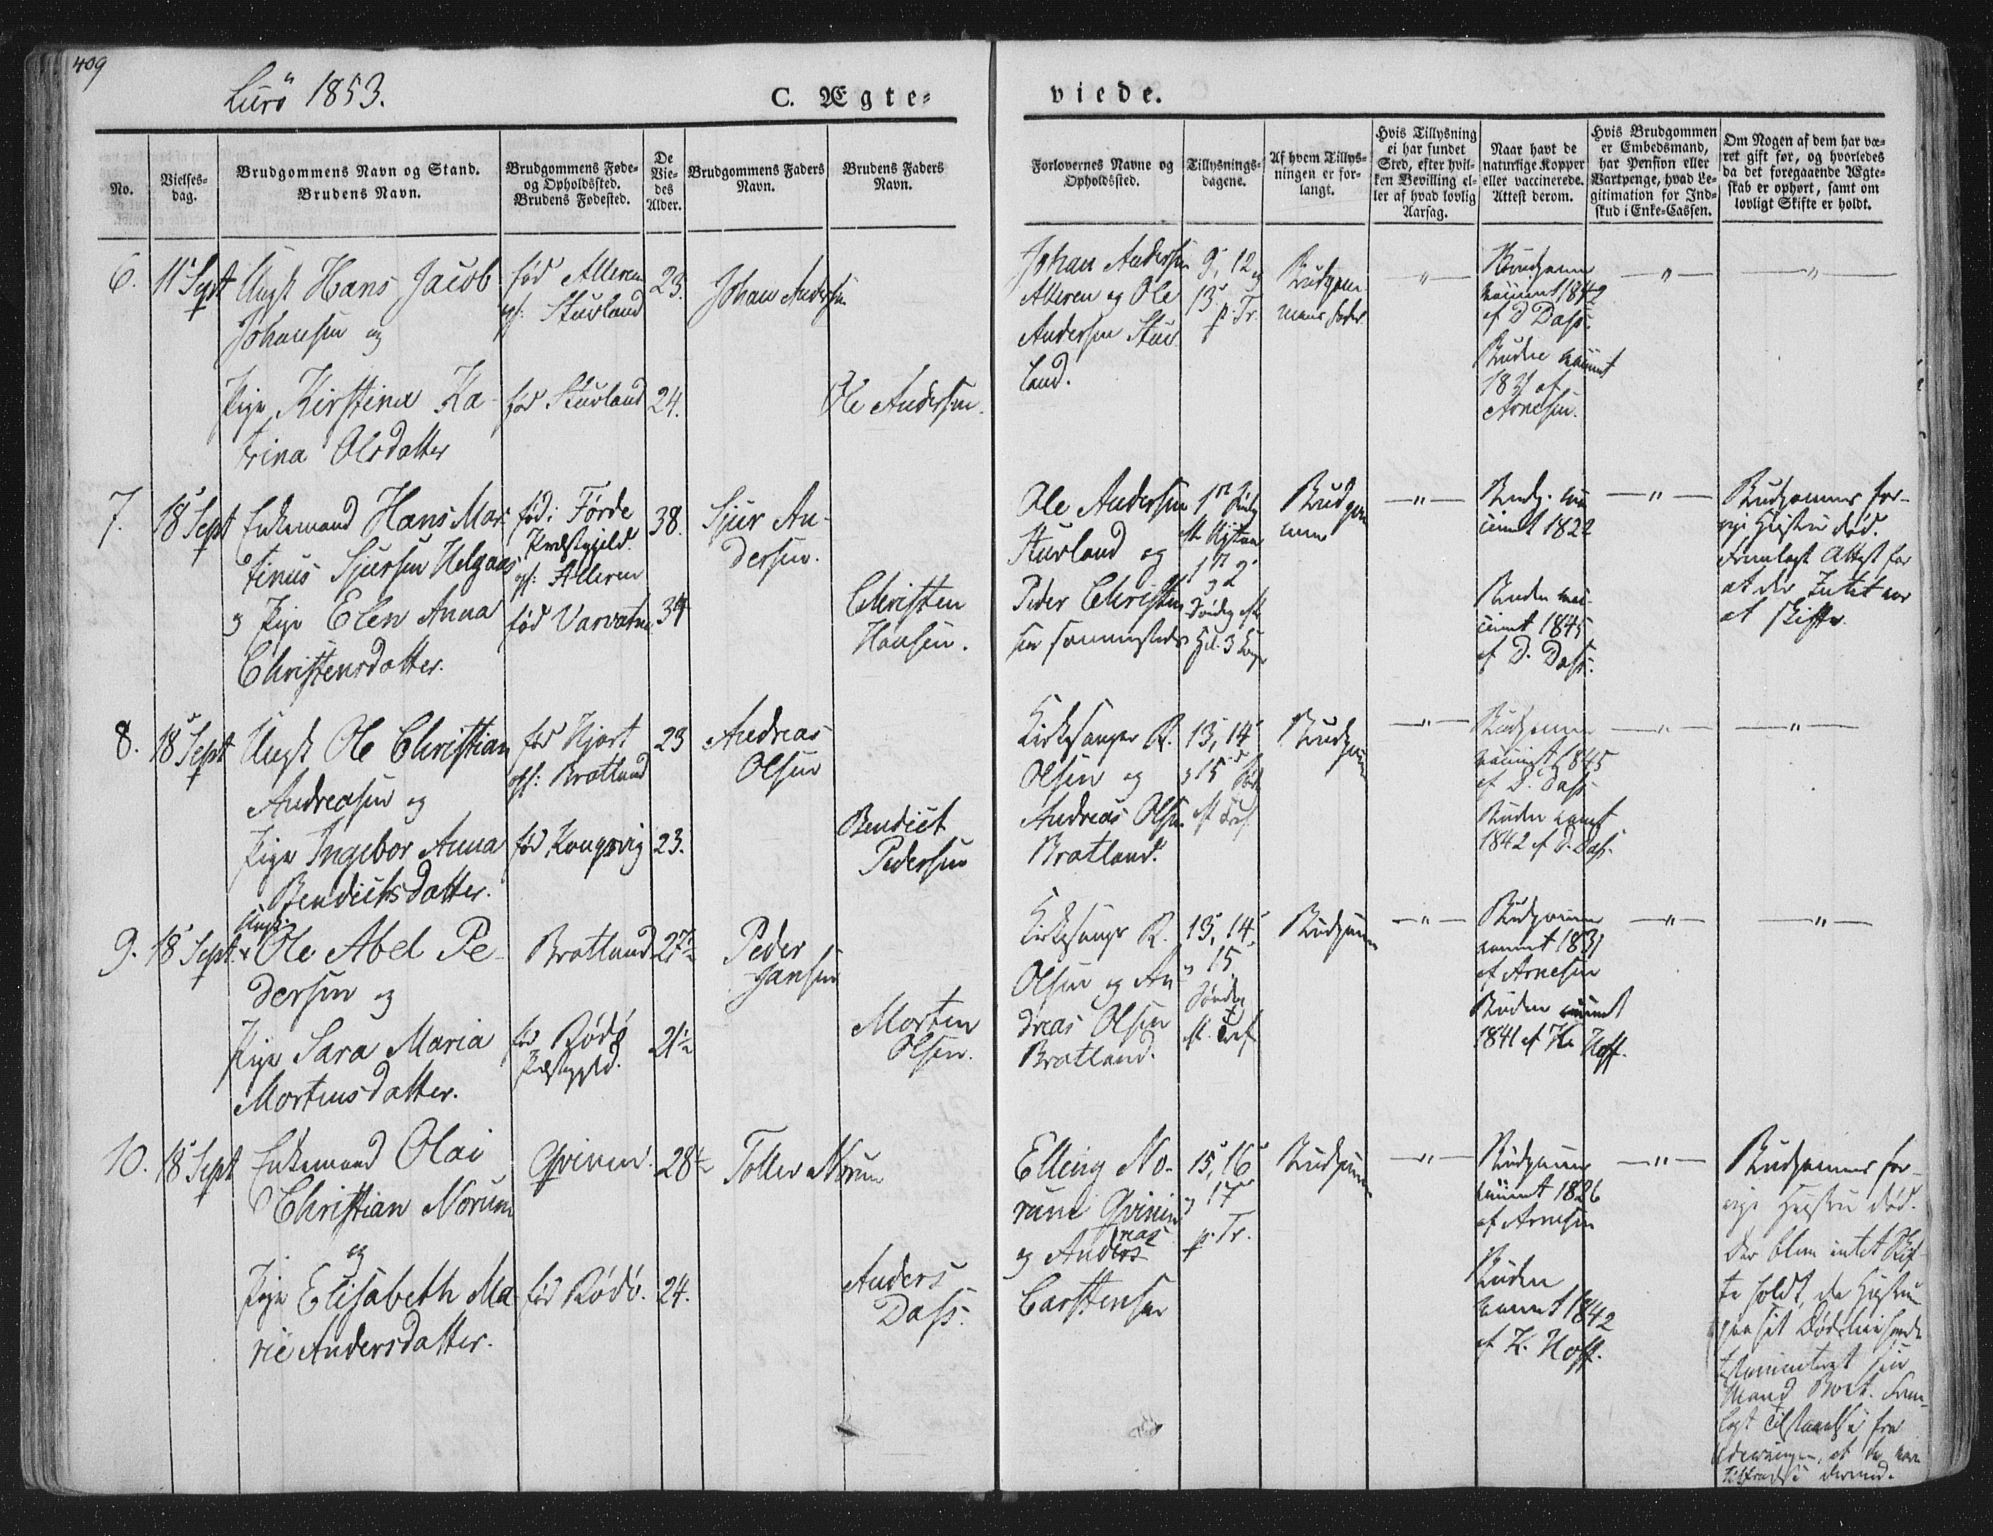 409
Lurö 1853.
C. Ægte=
viede.
No.
Vielses-
dag.
Brudgommens Navn og Stand.
Brudens Navn.
Brudgommens Føde-
og Opholdssted.
Brudens Fødested.
De
Vie-
des
Alder.
Brudgommens Faders
Navn.
Brudens Faders
Navn.
Forlovernes Navne og
Opholdssted.
Tillysnings-
dagene.
Af hvem Tillys-
ningen er for-
langt.
Hvis Tillysning
ei har fundet
Sted, efter hvil-
ken Bevilling el-
ler af hvad lovlig
Aarsag.
Naar havt de
naturlige Kopper
eller vaccinerede.
Attest derom.
Hvis Brudgommen
er Embedsmand,
har Pension eller
Vartpenge, hvad Le-
gitimation for Ind-
skud i Enke-Cassen.
Om Nogen af dem har væ-
ret gift før, og hvorledes
da det foregaaende Ægte-
skab er ophørt, samt om
lovligt Skifte er holdt.
6.
11 Sept
Ungk Hans Jacob
Johansen og
Pige Kirstina Ka-
trina Olsdatter
fød Alleren
opf: Stuvland
fød Stuvland
23.
24.
Johan Andersen
Ole Andersen.
Johan Andersen
Alleren og Ole
Andersen Stuv
land.
9, 12 og
13 p. Tr.
Brudgom-
mens Fader
"
Brudgommen
vaccinert 1842
af D. Dass.
Bruden vaccinert
1831 af
Arnesen.
"
"
7.
18 Sept
Enkemand Hans Mar
tinus Sjursen Helgaas
og Pige Elen Anna
Christensdatter.
fød i Førde
Præstegjeld.
opf: Alleren
fød Varvatne
38.
34
Sjur An-
dersen.
Christen
Hansen.
Ole Andersen
Stuvland og
Peder Christen
sen sammesteds
Brudgom
men
"
Brudg. vac
cinert 1822
Bruden vac-
cinert 1845
af D. Dass.
"
Brudgommens for-
rige Hustru død.
Fremlagt Attest for
at der Intet var
at skifte.
8.
18 Sept
Ungk Ole Christian
Andreasen og
Pige Ingebor Anna
Bendictsdatter.
fød Hjort
opf: Bratland
fød Kongsvig
23
23.
Andreas
Olsen
Bendict
Pedersen
Kirkesanger R.
Olsen og
Andreas Olsen
Bratland.
13, 14
og 15
Brudgommen
"
Brudgommen
vaccinert 1845
af D. Dass
Bruden vaccinert
1842 af D. Dass.
"
"
9.
18 Sept
Ungk.
Ole Abel Pe-
dersen og
Pige Sara Maria
Mortensdatter.
Bratland
fød Rødø
Præstegjeld.
27½
21½
Peder
Jansen
Morten
Olsen.
Kirkesanger R.
Olsen og An
dreas Olsen
Bratland.
13, 14,
og 15
Brudgommen
"
Brudgommen
vaccinert 1831
af Arnesen
Bruden vaccinert
1841 af K. Hoff.
"
"
10.
18 Sept
Enkemand Olai
Christian Norum
og
Pige Elisabeth Ma
rie Andersdatter.
Qvinen.
fød Rödö.
28½
24.
Toller Norum
Anders
Dass.
Elling No-
rum Qvinen
og Andreas
Carstensen
15, 16
og 17
p. Tr.
Brudgommen
"
Brudgommen
vaccinert 1826
af Arnesen
Bruden
vaccinert 1842
af K. Hoff.
"
Brudgommens for-
rige Hustru død.
Der blev intet Skif-
te holdt, da Hustru
paa sit Dødsleie havde
testamenteret sin
Mand Boet. Frem-
lagt Tilstaaelse fra
Udarvingen, at de vare
tilfredse dermed.